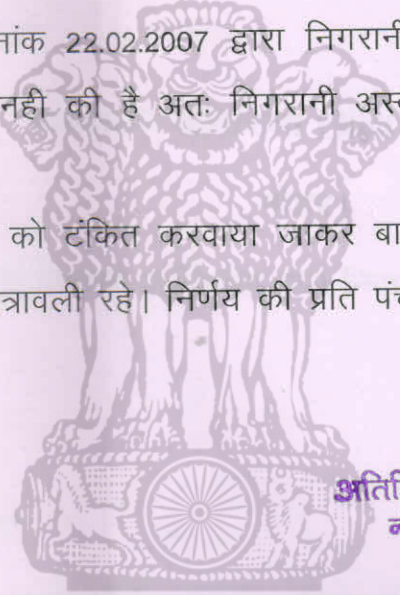 नांक 22.02.2007 द्वारा निगरानी
नही की है अतः निगरानी अस्
को टंकित करवाया जाकर बा
त्रावली रहे। निर्णय की प्रति पंच
अतिरि
न